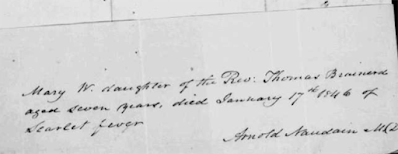 Mary W. daughter of the Rev: Thomas Brainerd
aged seven years, died January 17th 1846 of
Scarlet fever
Arnold Naudain M.D